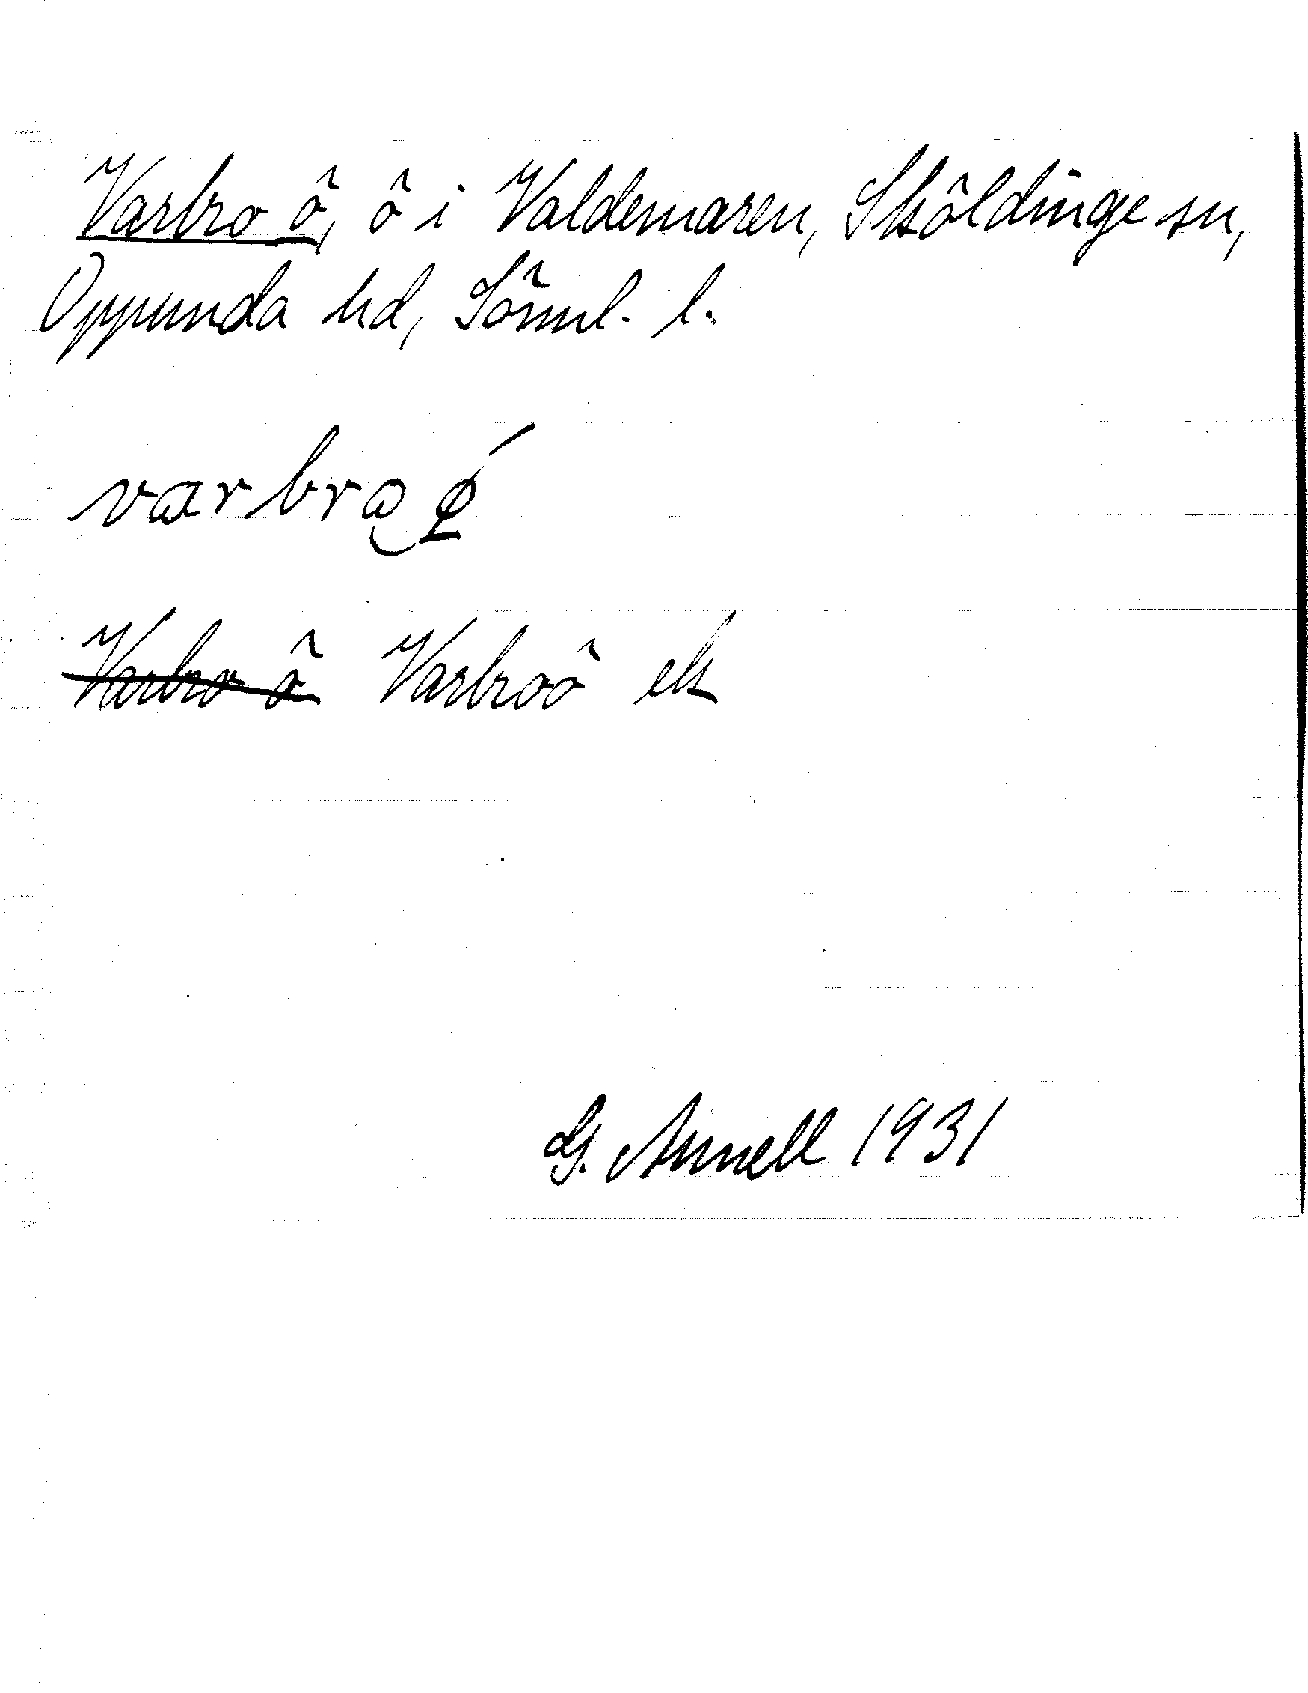 Varbro ö, ö i Valdemaren, Sköldinge sn,
Oppunda hd, Söml. l.
varbro ö́
Varbro ö Varbroö ek
G. Annell 1931